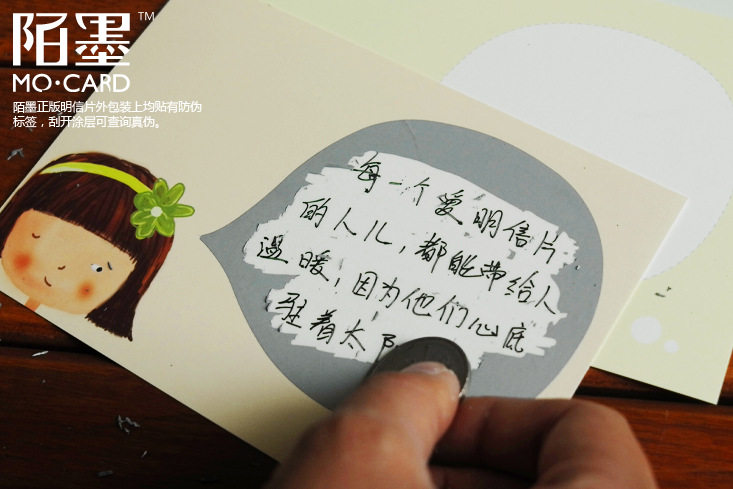 陌墨™
MO·CARD
陌墨正版明信片外包装上均贴有防伪
标签，刮开涂层可查询真伪。
每一个爱明信片
的人儿，都能带给人
温暖，因为他们心底
驻着太阝